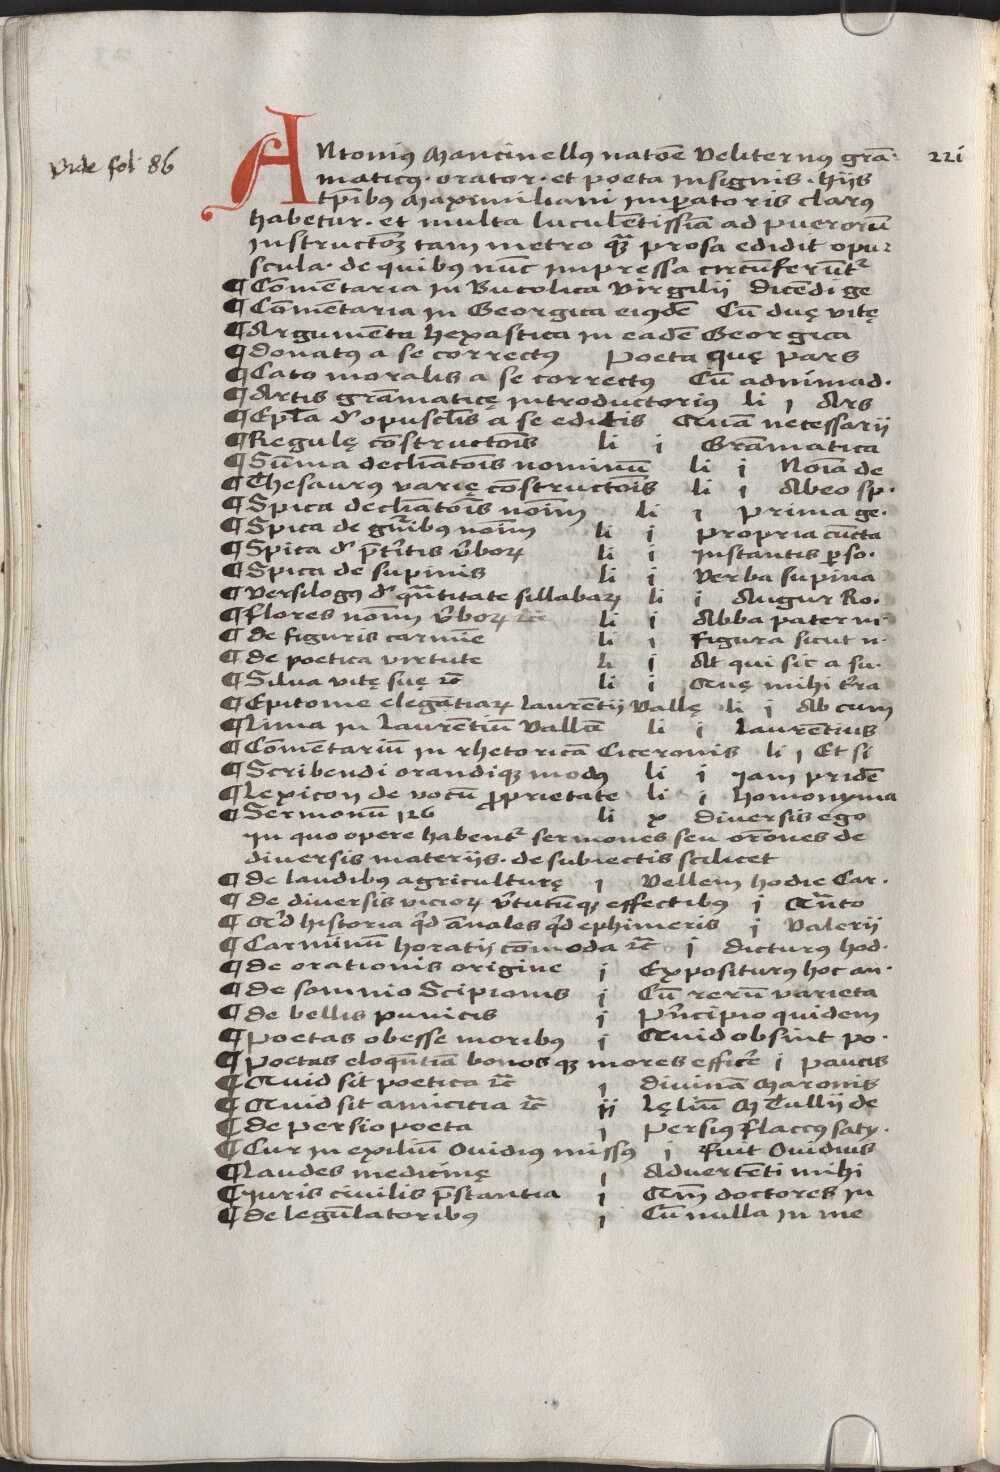 Vide fol 86
ANtoniꝰ Mancinellꝰ natōe Veliternꝰ grā- 221
maticꝰ · orator · et poeta insignis · hijs
tp̄ibꝰ Maximiliani imꝑatoris clarꝰ
habetur · et multa luculētissīa ad puerorū
instructōꝫ tam metro qᷓꝫ prosa edidit opu-
scula · de quibꝰ nūc impressa circūferūtᷣ
¶ Comētaria in Bucolica Virgilij Dicēdi ge
¶ Comētaria in Georgica eiꝰdē Cū duę vitę
¶ Argumēta hexastica in eadē Georgica
¶ Donatꝰ a se correctꝰ Poeta quę pars
¶ Cato moralis a se correctꝰ Cū adnimad·
¶ Artis grāmaticę introductoriꝰ li j Ars
¶ Epl̄a d' opuscl̄is a se editis Quā necessarij
¶ Regulę cōstructōis li i Grāmatica
¶ Sūma declīatōis nominū li j Noīa de
¶ Thesaurꝰ varię cōstructōis li j Abeo sp·
¶ Spica declīatōis noīm li j Prima ge·
¶ Spica de gn̄ibꝰ noīm li i Propria cūcta
¶ Spica d' p̄titis v̄boꝝ li i Instantis ꝑso·
¶ Spica de supinis li i Verba supina
¶ Versilogꝰ d' qᷓntitate sillabaꝝ li i Augur Ro·
¶ Flores noīm v̄boꝝ ⁊c̄ li i Abba pater ni
¶ De figuris carmīe li i Figura sicut n·
¶ De poetica virtute li i At qui sic a su·
¶ Silua vitę suę ⁊c̄ li i Quę mihi t̄ra
¶ Epitome elegātiaꝝ Laurētij Vallę li j Ab cum
¶ Lima in Laurētiū Vallā li i Laurētius
¶ Comētariū in rhetoricā Ciceronis li j Et si
¶ Scribendi orandiqꝫ modꝰ li i Iam pridē
¶ Lexicon de vocū ꝓprietate li i Homonyma
¶ Sermonū 126 li x Diversis ego
In quo opere habentᷣ sermones seu orōnes de
diversis materijs · de subiectis scilicet
¶ De laudibꝰ agriculturę j Vellem hodie Car·
¶ De diversis vicioꝝ v̄tutūqꝫ effectibꝰ j Qᷓnto
¶ Qͥd historia qͥd ānales qͥd ephimeris j Valerij
¶ Carminū Horatij cōmoda ⁊c̄ j Dicturꝰ hod·
¶ De orationis origine j Expositurꝰ hoc an·
¶ De somnio Scipionis j Cū rerū varieta
¶ De bellis punicis j Pͥncipio quidem
¶ Poetas obesse moribꝰ i Quid obsint po·
¶ Poetas eloqūtiā bonosqꝫ mores effic̄e i Paucis
¶ Quid sit poetica ⁊c̄ j Divinā Maronis
¶ Quid sit amicicia ⁊c̄ ij Lęliū M Tullij de
¶ De Persio poeta j Persiꝰ Flaccꝰ saty·
¶ Cur in exiliū Ovidiꝰ missꝰ j Fuit Ovidius
¶ Laudes medicinę j Advertēti mihi
¶ Juris civilis p̄stantia j Qm̄ doctores in
¶ De legūlatoribꝰ j Cū nulla in me